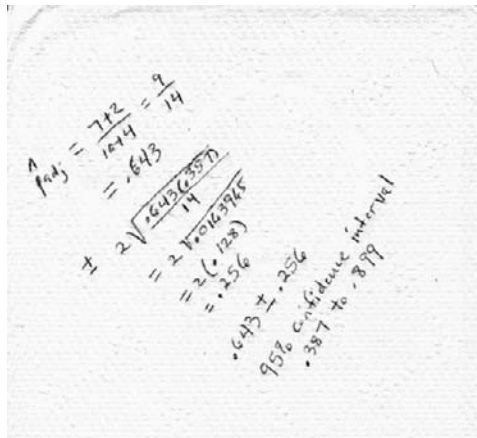 p̂adj = 7+2/10+4 = 9/14
= .643
± 2√.643(.357)/14
= 2√.0163965
= 2(.128)
= .256
.643 ± .256
95% confidence interval
.387 to .899